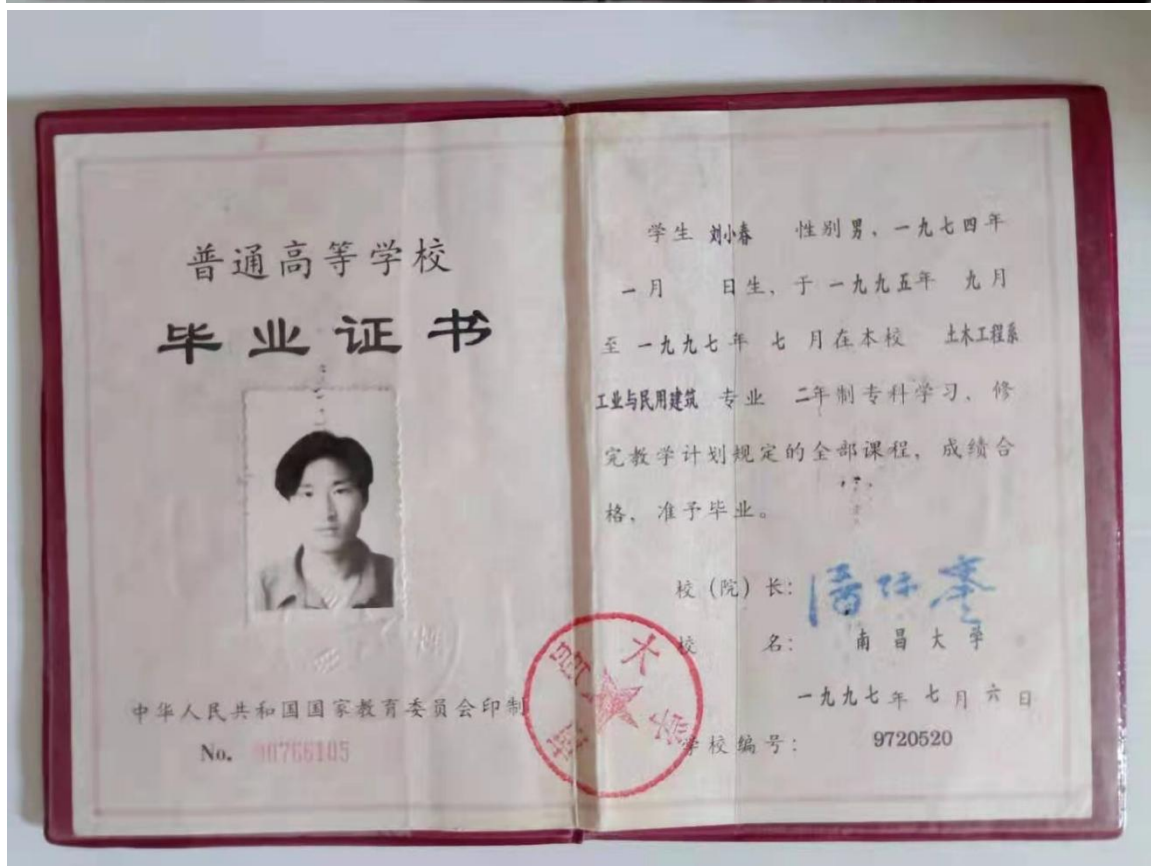 普通高等学校
毕业证书
中华人民共和国国家教育委员会印制
No. 90766105
学生 刘小春 性别男，一九七四年
一月 日生，于一九九五年 九月
至 一九九七年 七 月在本校 土木工程系
工业与民用建筑 专业 二年制专科学习，修
完教学计划规定的全部课程，成绩合
格，准予毕业。
校（院）长：潘际銮
校 名：南昌大学
一九九七年 七月 六日
学校编号：9720520
南昌大学